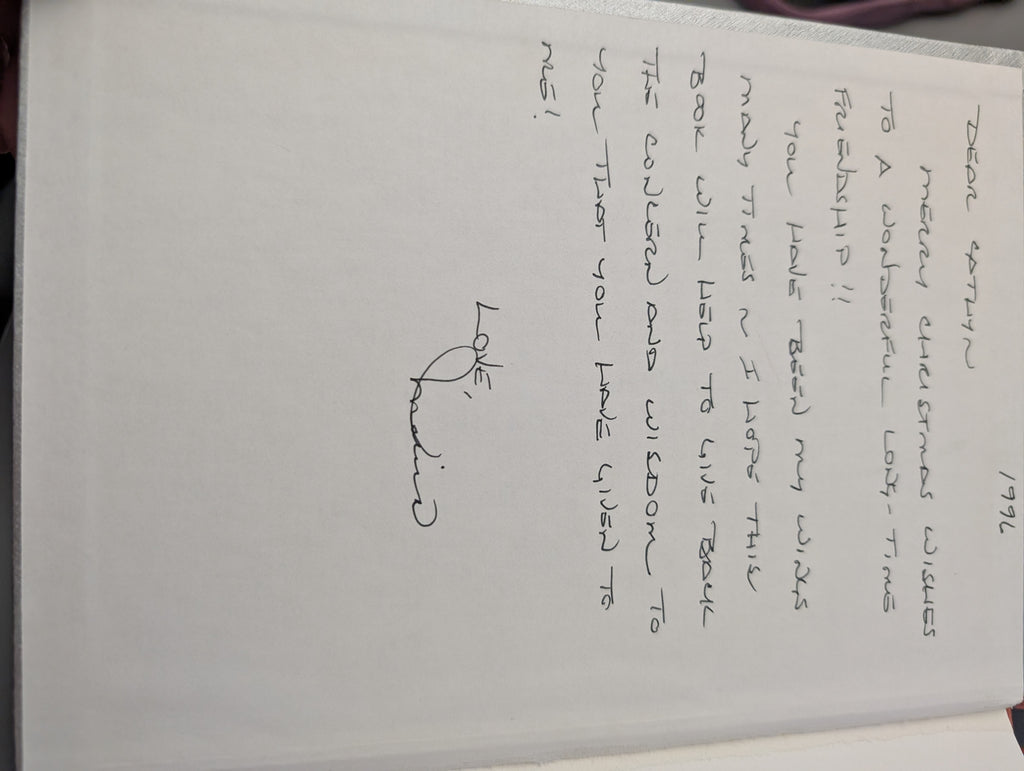 1996
DEAR CATHYN
MERRY CHRISTMAS WISHES
TO A WONDERFUL LONG-TIME
FRIENDSHIP!!
YOU HAVE BEEN MY WINGS
MANY TIMES ~ I HOPE THIS
BOOK WILL HELP TO GIVE BACK
THE CONCERN AND WISDOM TO
YOU THAT YOU HAVE GIVEN TO
ME!
LOVE,